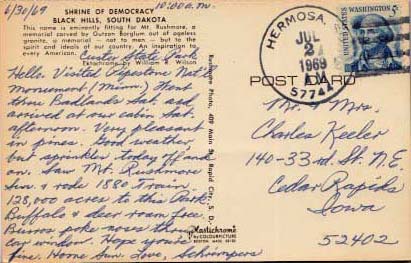 6/30/69 10:00 a.m.
SHRINE OF DEMOCRACY
BLACK HILLS, SOUTH DAKOTA
This name is eminently fitting for Mt. Rushmore, a
memorial carved by Gutzon Borglum out of ageless
granite, a memorial - not to men - but to the
spirit and ideals of our country. An inspiration to
every American.
Ektachrome by William R. Wilson
Custer State Park
Hello. Visited Pipestone Nat'l
Monument (Minn.) Went
thru Badlands Sat. and
arrived at our cabin Sat.
afternoon. Very pleasant
in pines. Good weather,
but sprinkles today off and
on. Saw Mt. Rushmore
Sun. & rode 1880 Train.
128,000 acres to this Park.
Buffalo & deer roam free.
Burros poke noses through
car window. Hope you're
fine. Home Sun. Love, Schrimpers
Rushmore Photo, Rapid City, S. D.
Plastichrome
by COLOURPICTURE
BOSTON, MASS.
POST CARD
HERMOSA,
JUL
2
AM
1969
57744
WASHINGTON 5¢
Mr. & Mrs.
Charles Keeler
140-33rd St. N.E.
Cedar Rapids
Iowa
52402